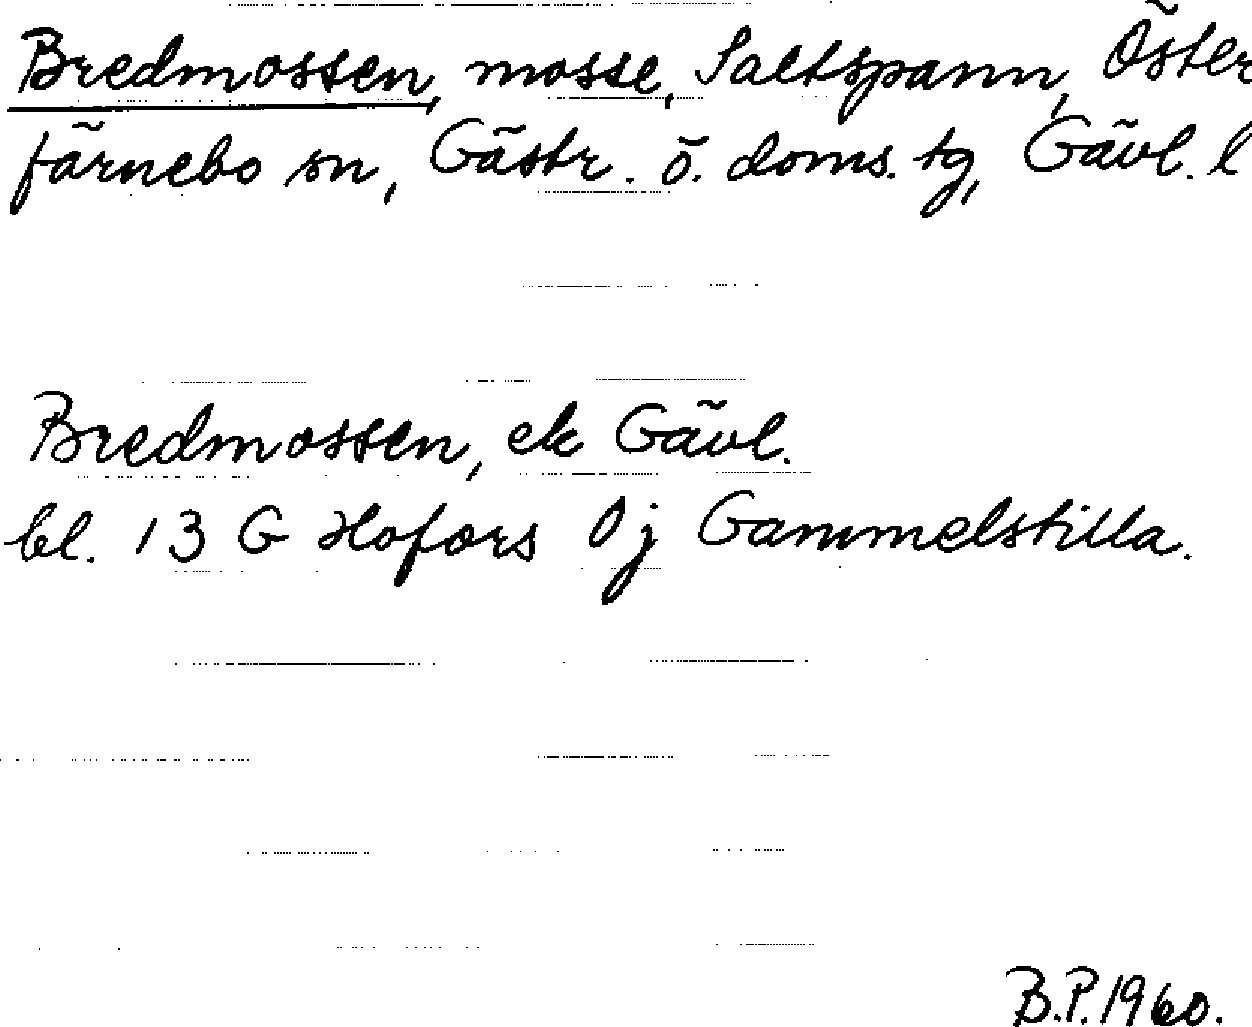 Bredmossen, mosse, Saltspann, Öster
färnebo sn, Gästr. ö. doms. tg, Gävl. l
Bredmossen, ek Gävl.
bl. 13 G Hofors 0j Gammelstilla.
B.P. 1960.